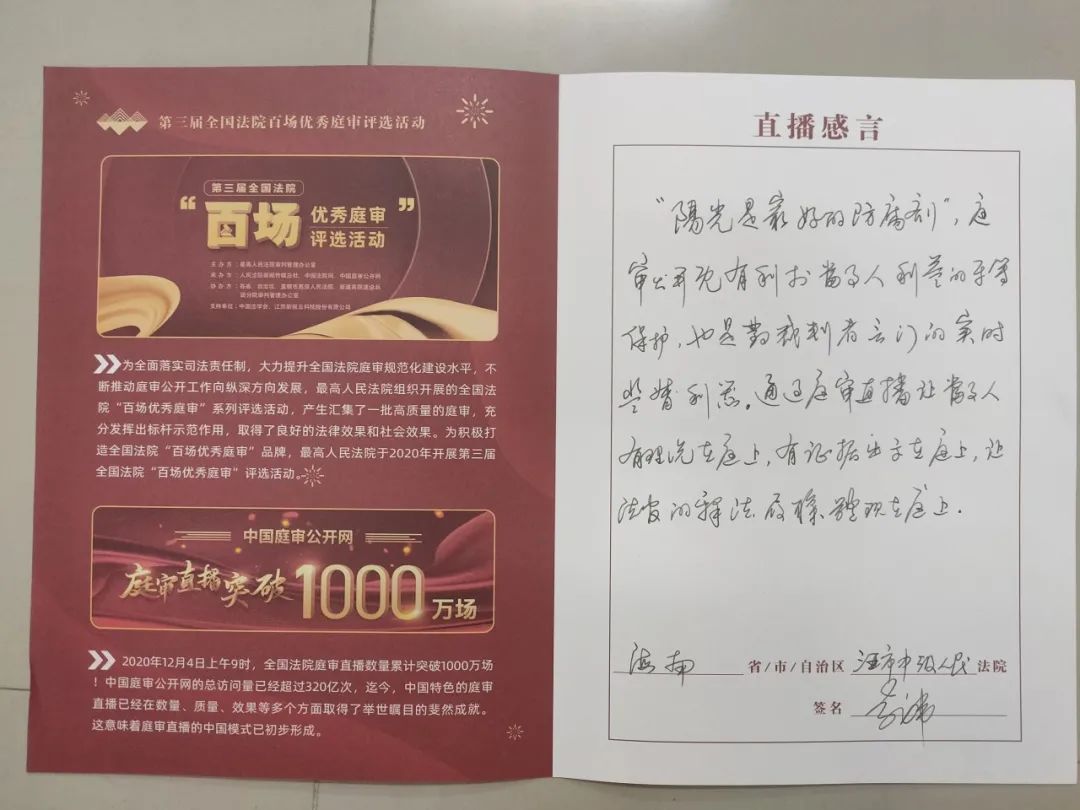 第三届全国法院百场优秀庭审评选活动
第三届全国法院
“百场优秀庭审评选活动”
主 办 方：最高人民法院审判管理办公室
承 办 方：人民法院新闻传媒总社、中国法院网、中国庭审公开网
协 办 方：各省、自治区、直辖市高级人民法院，新疆高院建设兵
团分院审判管理办公室
支持单位：中国法学会、江苏新视云科技股份有限公司
为全面落实司法责任制，大力提升全国法院庭审规范化建设水平，不
断推动庭审公开工作向纵深方向发展，最高人民法院组织开展的全国法
院“百场优秀庭审”系列评选活动，产生汇集了一批高质量的庭审，充
分发挥出标杆示范作用，取得了良好的法律效果和社会效果。为积极打
造全国法院“百场优秀庭审”品牌，最高人民法院于2020年开展第三届
全国法院“百场优秀庭审”评选活动。
中国庭审公开网
庭审直播突破1000万场
2020年12月4日上午9时，全国法院庭审直播数量累计突破1000万场
！中国庭审公开网的总访问量已经超过320亿次，迄今，中国特色的庭审
直播已经在数量、质量、效果等多个方面取得了举世瞩目的斐然成就。
这意味着庭审直播的中国模式已初步形成。
直播感言
“陽光是最好的防腐剂”，庭
审公开既有利於當事人利益的平等
保护，也是對裁判者言行的实时
。通过庭审直播让當事人
有理说在庭上，有证据出示在庭上，让
法官的释法 體现在庭上．
海南 省/市/自治区 市中级人民 法院
签名